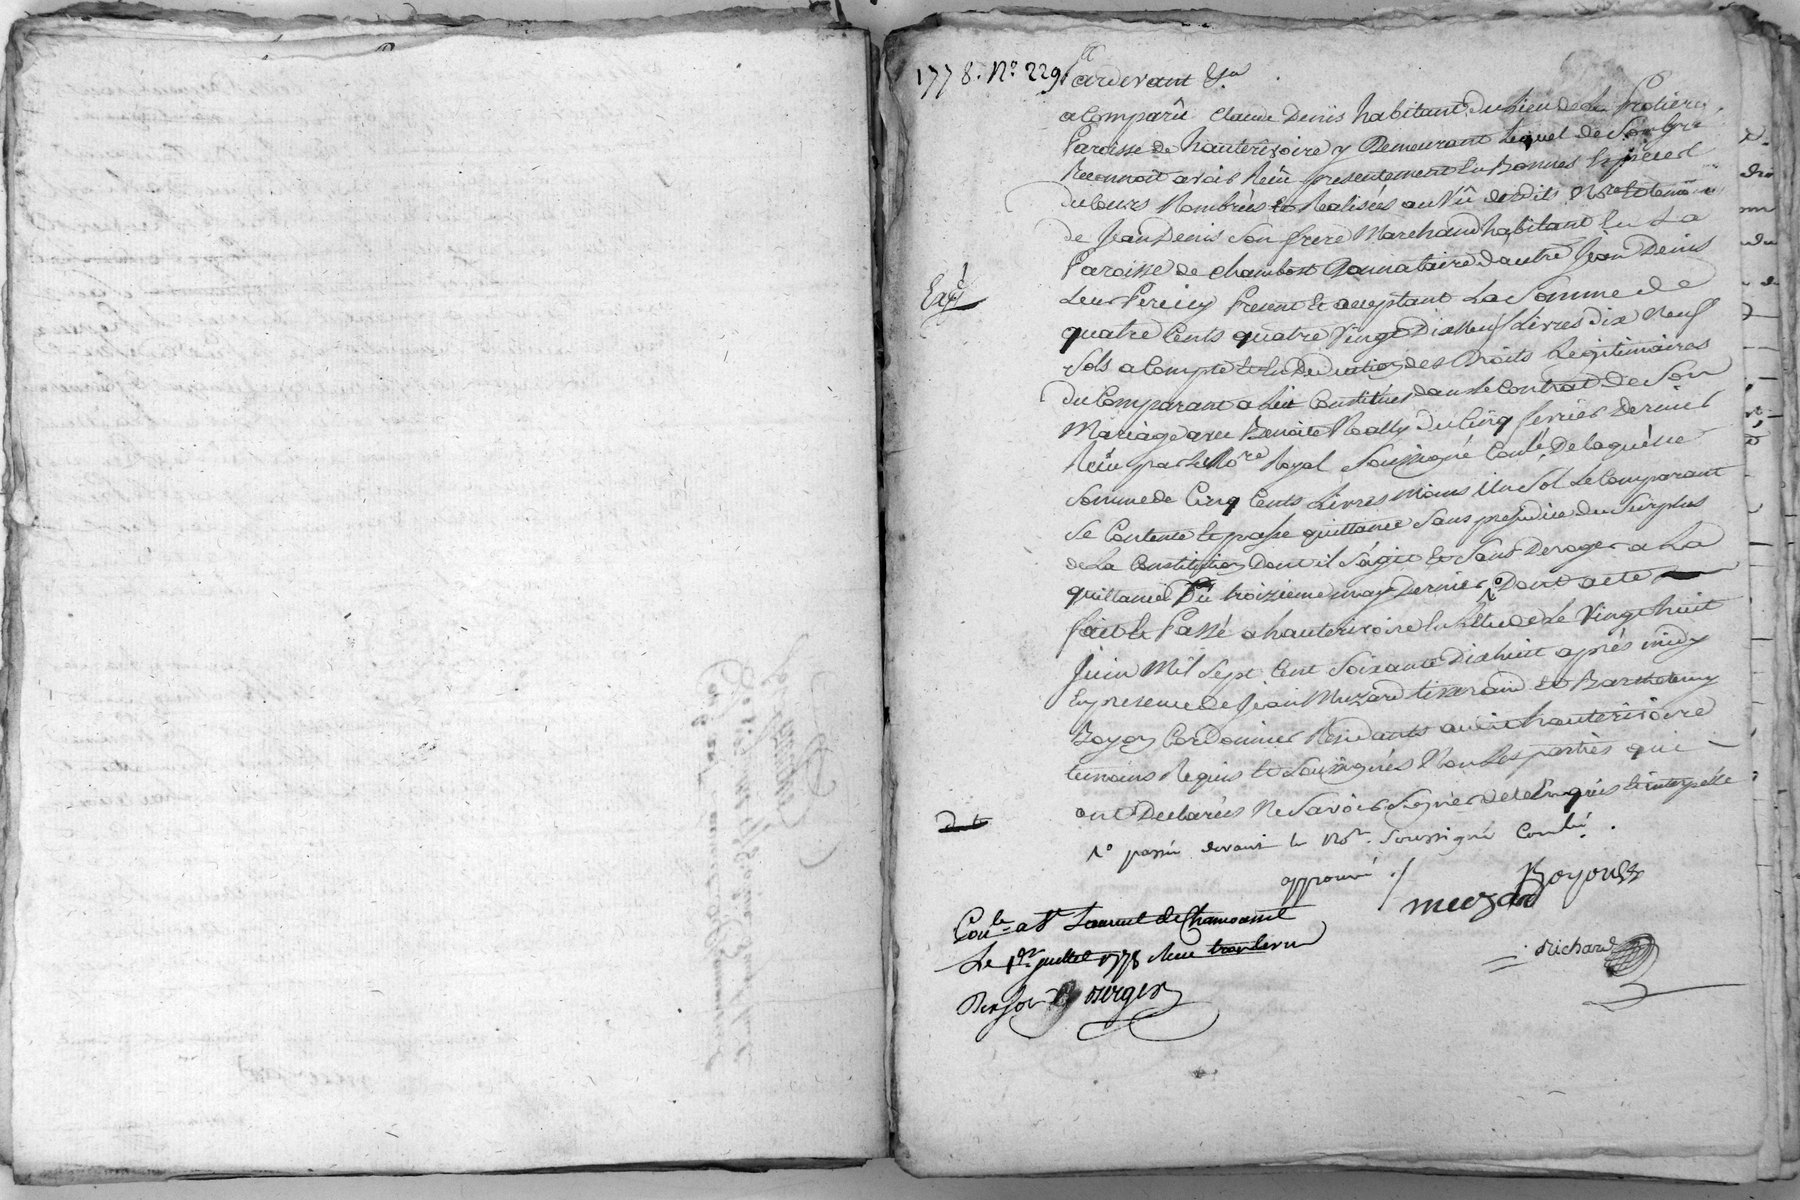 1778. N° 229 Pardevant &a
a Comparû Claude Denis habitant du Lieu de La
Paroisse de hauterivoire y Demeurant Lequel de Son Gré
Reconnoit avoir Reçû presentement En Bonnes Especes
du Cours Nombrées Et Realisées au Vû desdits Nore Et temoins
de Jean Denis Son frere Marchand habitant En La
Paroisse de Chambost Donnataire d'autre Jean Denis
Leur Pere icy Present Et acceptant La Somme de
Exp.é
quatre Cents quatre Vingt Dix Neuf Livres Dix Neuf
Sols a Compte Et En Deduction des Droits Legitimaires
du Comparant a Lui Constitués dans Le Contrat de Son
Mariage avec Benoite Du Cinq fevrier Dernier
Reçû par Le No.re Royal Soussigné Conlé. De laquelle
Somme de Cinq Cents Livres moins Un Sol Le Comparant
Se Contente Et passe quittance Sans prejudice du Surplus
de La Constitution Dont il S'agit Et Sans Deroger a La
quittance Du troizieme may Dernier 1° Dont acte
fait Et Passé a hauterivoire En Etude Le Vingt huit
Juin Mil Sept Cent Soixante Dix huit après midy
En presence de Jean Muzard tisserand Et Barthelemy
Boyon Cordonnier Residants audit hauterivoire
temoins Requis Et Soussignés Non Les parties qui
ont Declarées Ne Savoir Signer de ce Enquis Et interpellé
1° passée devant le No.re Soussigné Conlé.
approuvé ./.
Boyon
muzard
Richard
Conlé a St Laurent de Chamousset
Le 1er juillet 1778 Reçu
Berger